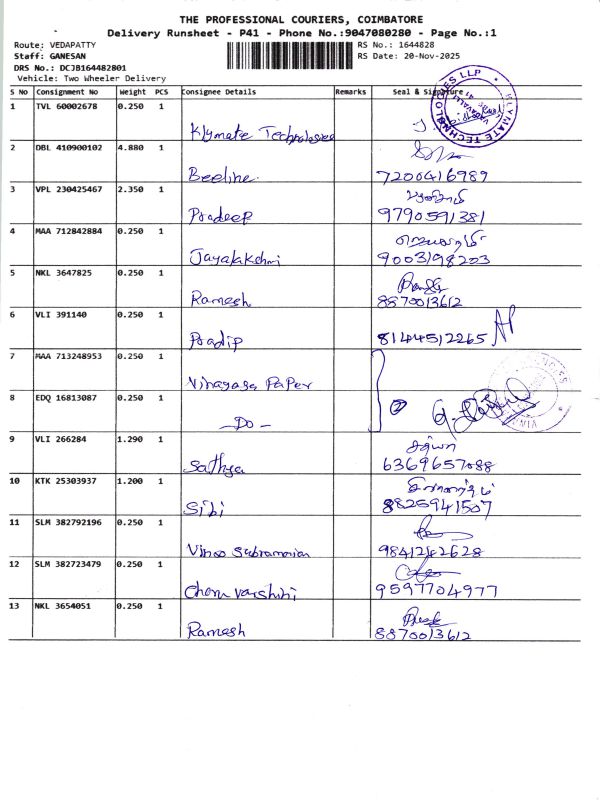 THE PROFESSIONAL COURIERS, COIMBATORE
Delivery Runsheet - P41 - Phone No.:9047080280 - Page No.:1
Route: VEDAPATTY RS No.: 1644828
Staff: GANESAN RS Date: 20-Nov-2025
DRS No.: DCJB164482801
Vehicle: Two Wheeler Delivery
S No Consignment No Weight PCS Consignee Details Remarks Seal & Signature
1 TVL 60002678 0.250 1
Klymate Technologies
KLYMATE TECHNOLOGIES LLP
2 DBL 410900102 4.880 1
Beeline. 7200416989
3 VPL 230425467 2.350 1
Pradeep 9790591381
4 MAA 712842884 0.250 1
Jayalakshmi 9003198203
5 NKL 3647825 0.250 1
Ramesh 8870013612
6 VLI 391140 0.250 1
Pradip 8144512265
7 MAA 713248953 0.250 1
Vinayaga Paper
8 EDQ 16813087 0.250 1
-Do- 2
9 VLI 266284 1.290 1
சத்யா
Sathya 6369657088
10 KTK 25303937 1.200 1
Sibi 8825941507
11 SLM 382792196 0.250 1
Vinoo Subramanian 9841242628
12 SLM 382723479 0.250 1
Charu varshini 9597704977
13 NKL 3654051 0.250 1
Ramesh 8870013612